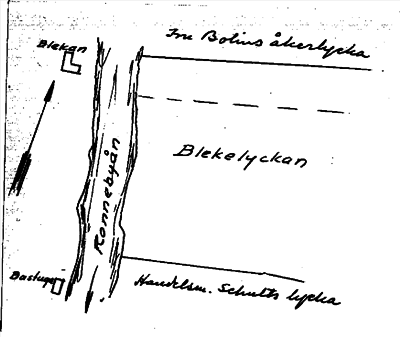 Fru Bolins åkerlycka
Blekan
Blekelyckan
Ronnebyån
Handelsm. Schults lycka